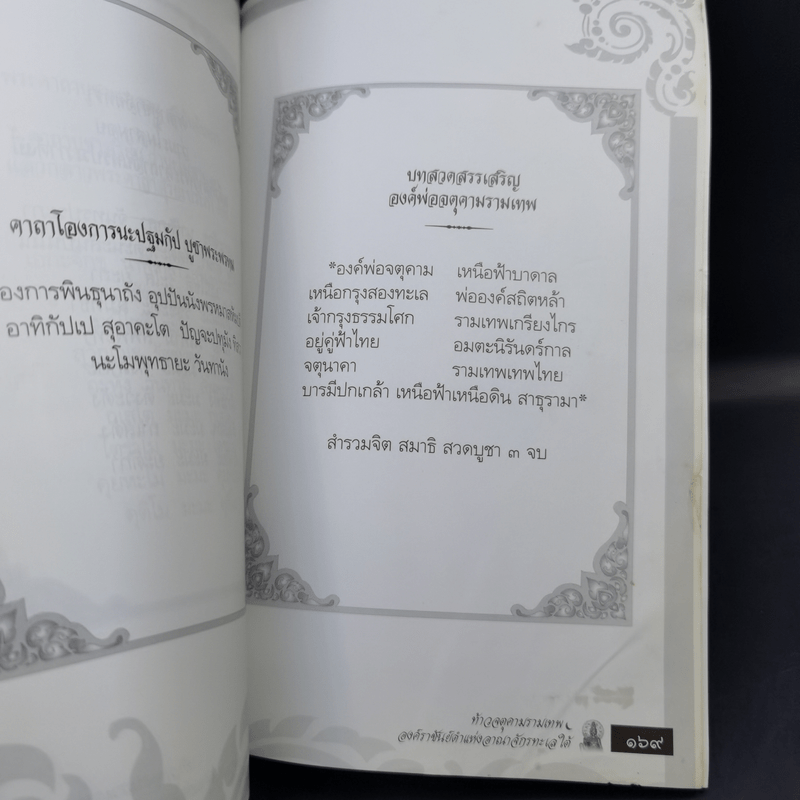 คาถาโองการนะปฐมกัป บูชาพระพรหม
องการพินธุนาถัง อุปปันนัง
อาทิกัปเป สุอาคะโต ปัญจะปทุมัง
นะโมพุทธายะ วันทานัง
บทสวดสรรเสริญ
องค์พ่อจตุคามรามเทพ
*องค์พ่อจตุคาม เหนือฟ้าบาดาล
เหนือกรุงสองทะเล พ่อองค์สถิตหล้า
เจ้ากรุงธรรมโศก รามเทพเกรียงไกร
อยู่คู่ฟ้าไทย อมตะนิรันดร์กาล
จตุนาคา รามเทพเทพไทย
บารมีปกเกล้า เหนือฟ้าเหนือดิน สาธุรามา*
สำรวมจิต สมาธิ สวดบูชา ๓ จบ
ท้าวจตุคามรามเทพ
องค์ราชันย์ดำแห่งอาณาจักรทะเลใต้
๑๖๙